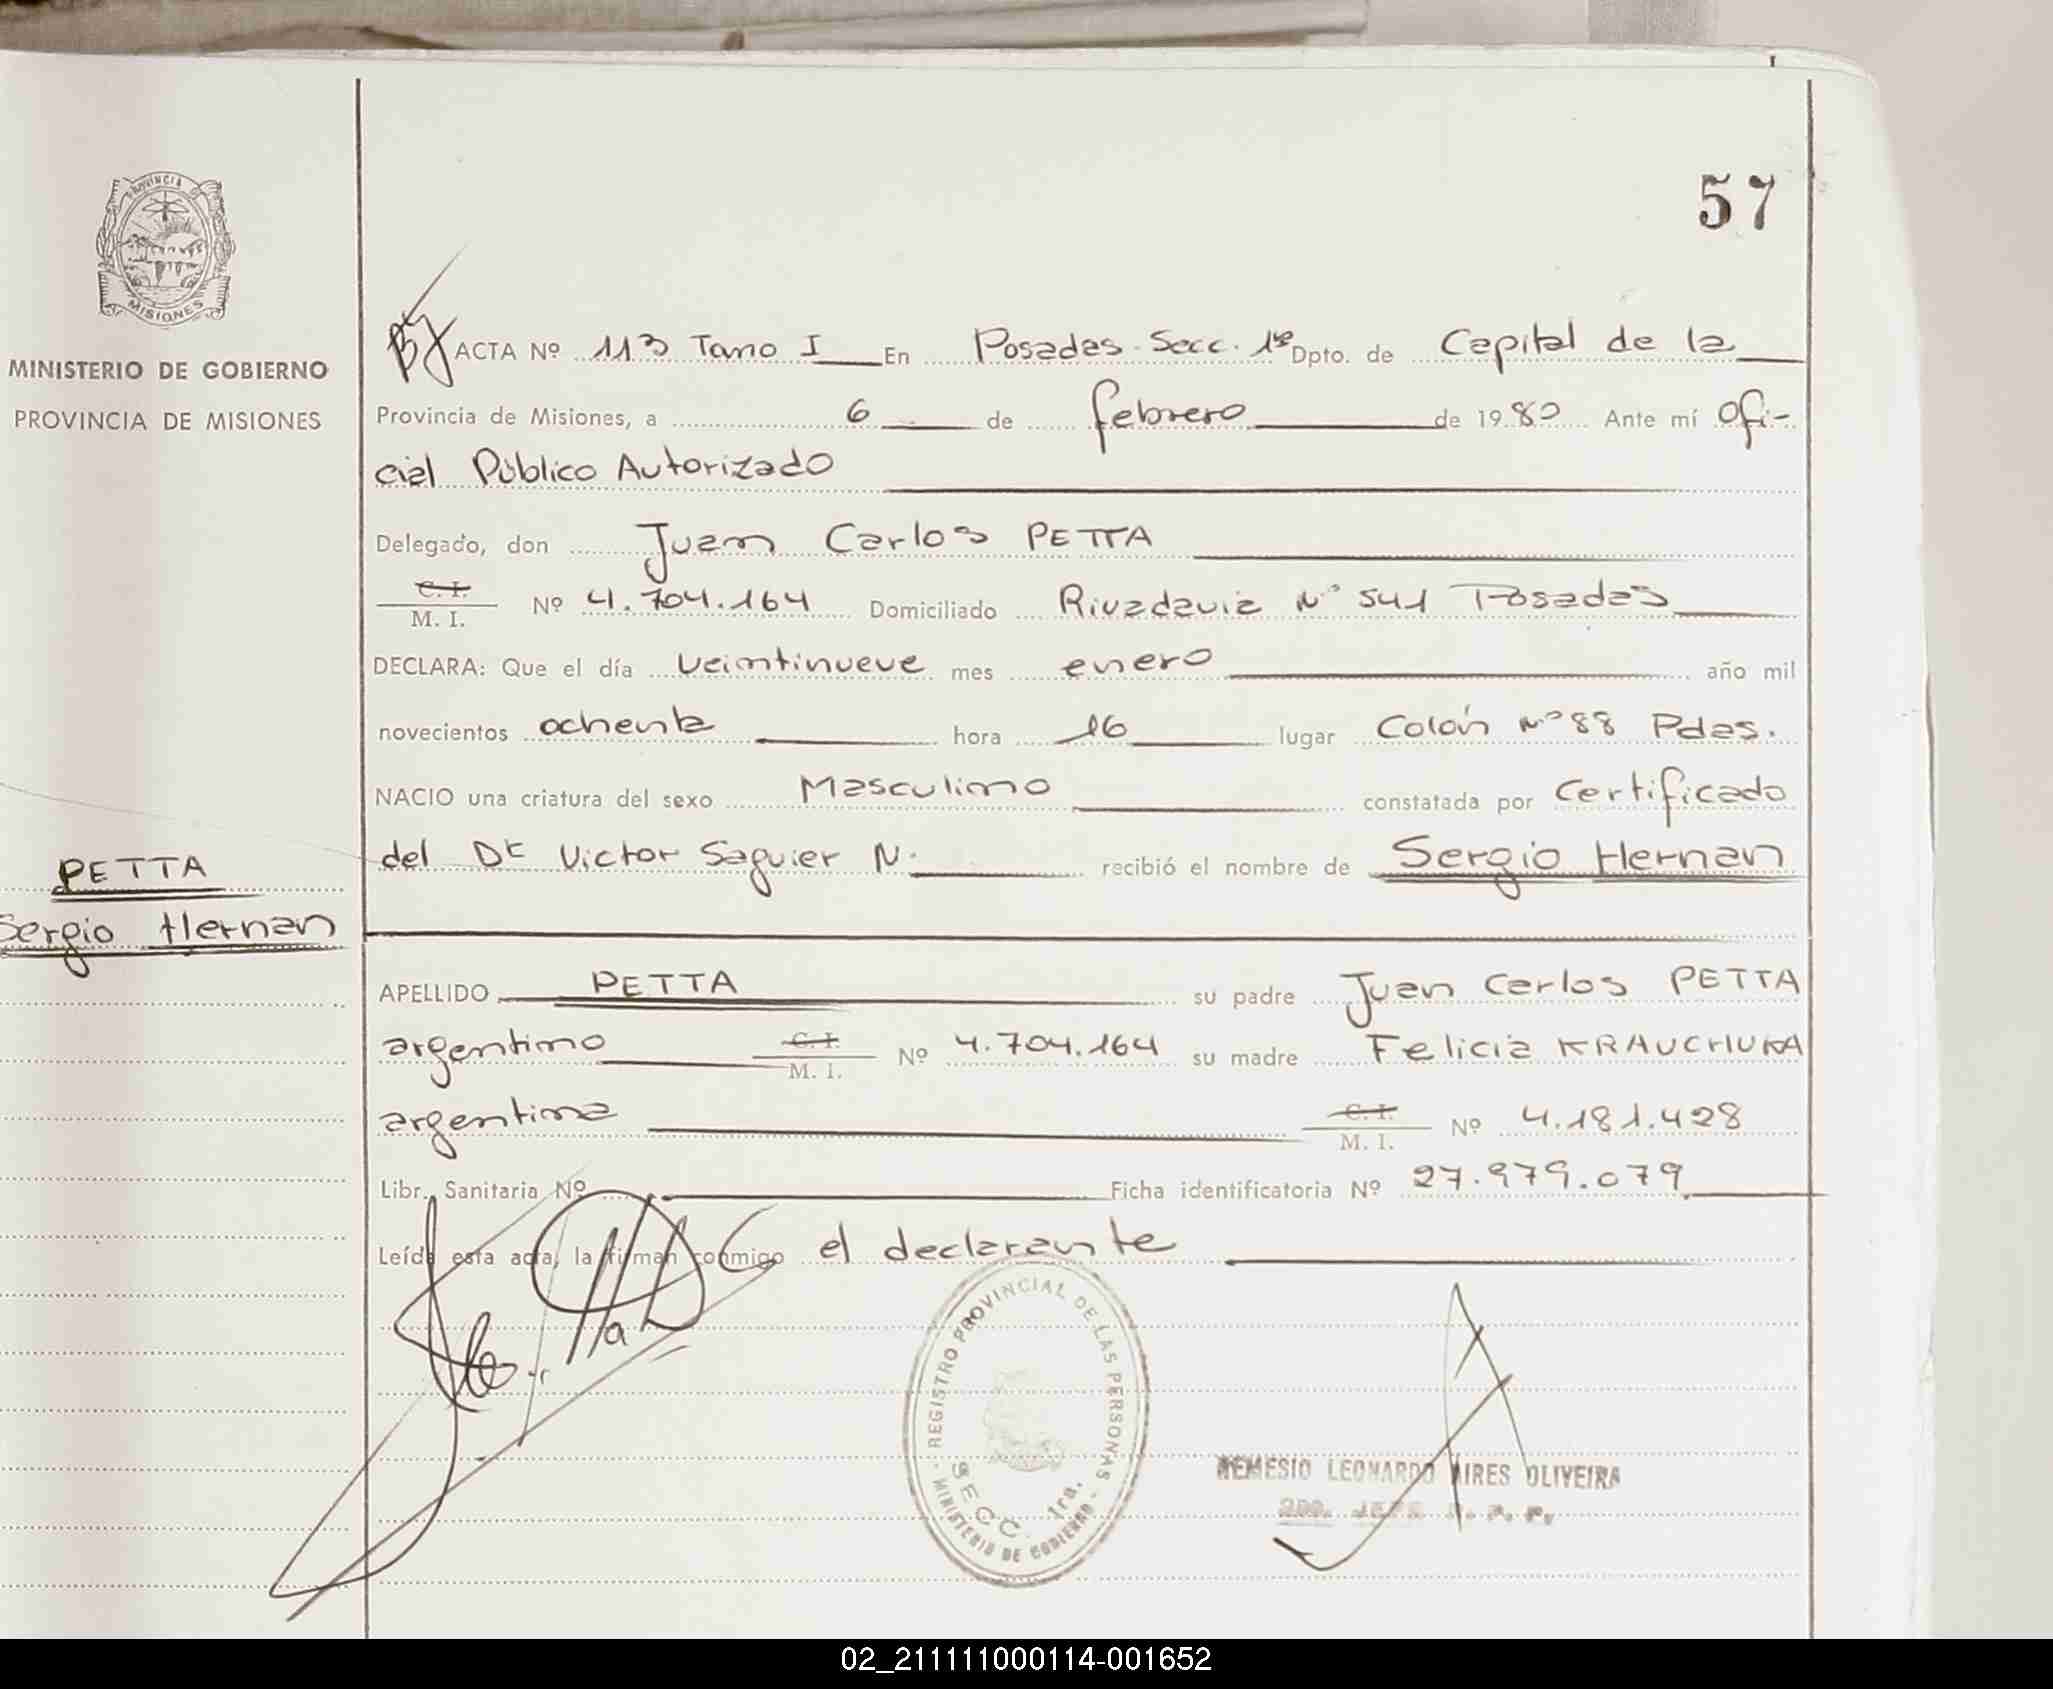 57
PROVINCIA
MISIONES
MINISTERIO DE GOBIERNO
PROVINCIA DE MISIONES
ACTA Nº 113 Tomo I En Posadas-Secc. 1ª Dpto. de Capital de la
Provincia de Misiones, a 6 de febrero de 1980 Ante mí Ofi-
cial Público Autorizado
Delegado, don Juan Carlos PETTA
C. I.
M. I. Nº 4.704.164 Domiciliado Rivadavia Nº 541 Posadas
DECLARA: Que el día veintinueve mes enero año mil
novecientos ochenta hora 16 lugar Colón Nº 88 Pdas.
NACIO una criatura del sexo Masculino constatada por Certificado
del Dr Victor Saguier N. recibió el nombre de Sergio Hernan
PETTA
Sergio Hernan
APELLIDO PETTA su padre Juan Carlos PETTA
argentino C. I.
M. I. Nº 4.704.164 su madre Felicia KRAUCHUKA
argentina C. I.
M. I. Nº 4.181.428
Libr. Sanitaria Nº Ficha identificatoria Nº 27.979.079
Leída esta acta, la firman conmigo el declarante
REGISTRO PROVINCIAL DE LAS PERSONAS
SECC. 1ra.
MINISTERIO DE GOBIERNO
NEMESIO LEONARDO AIRES OLIVEIRA
02_211111000114-001652